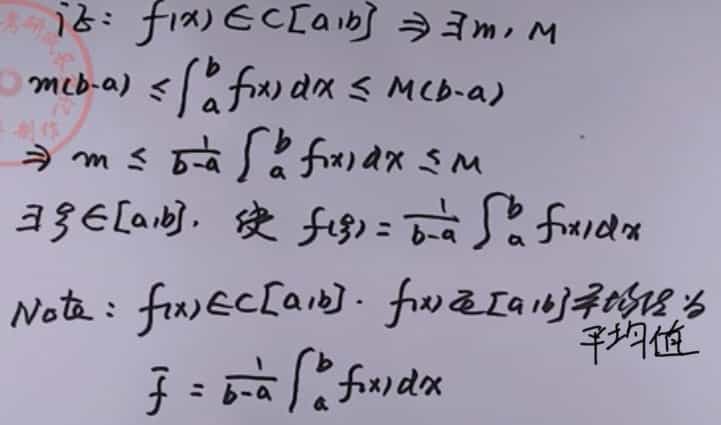 证: f(x)∈C[a,b] ⇒ ∃m, M
m(b-a) ≤ ∫_a^b f(x)dx ≤ M(b-a)
⇒ m ≤ 1/(b-a) ∫_a^b f(x)dx ≤ M
∃ξ∈[a,b]. 使 f(ξ) = 1/(b-a) ∫_a^b f(x)dx
Note: f(x)∈C[a,b]. f(x)在[a,b]平均值为
平均值
f̄ = 1/(b-a) ∫_a^b f(x)dx